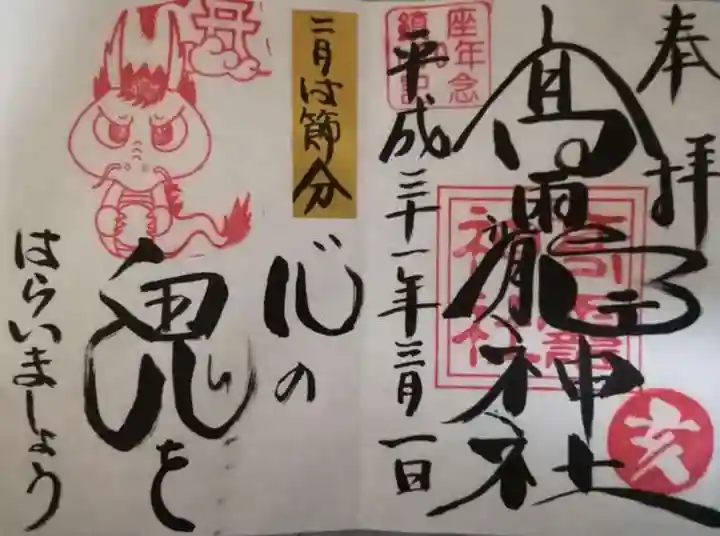 奉拝
高龗神社
高龗
神社
亥
平成三十一年三月一日
二月は節分
心の
鬼を
はらいましょう